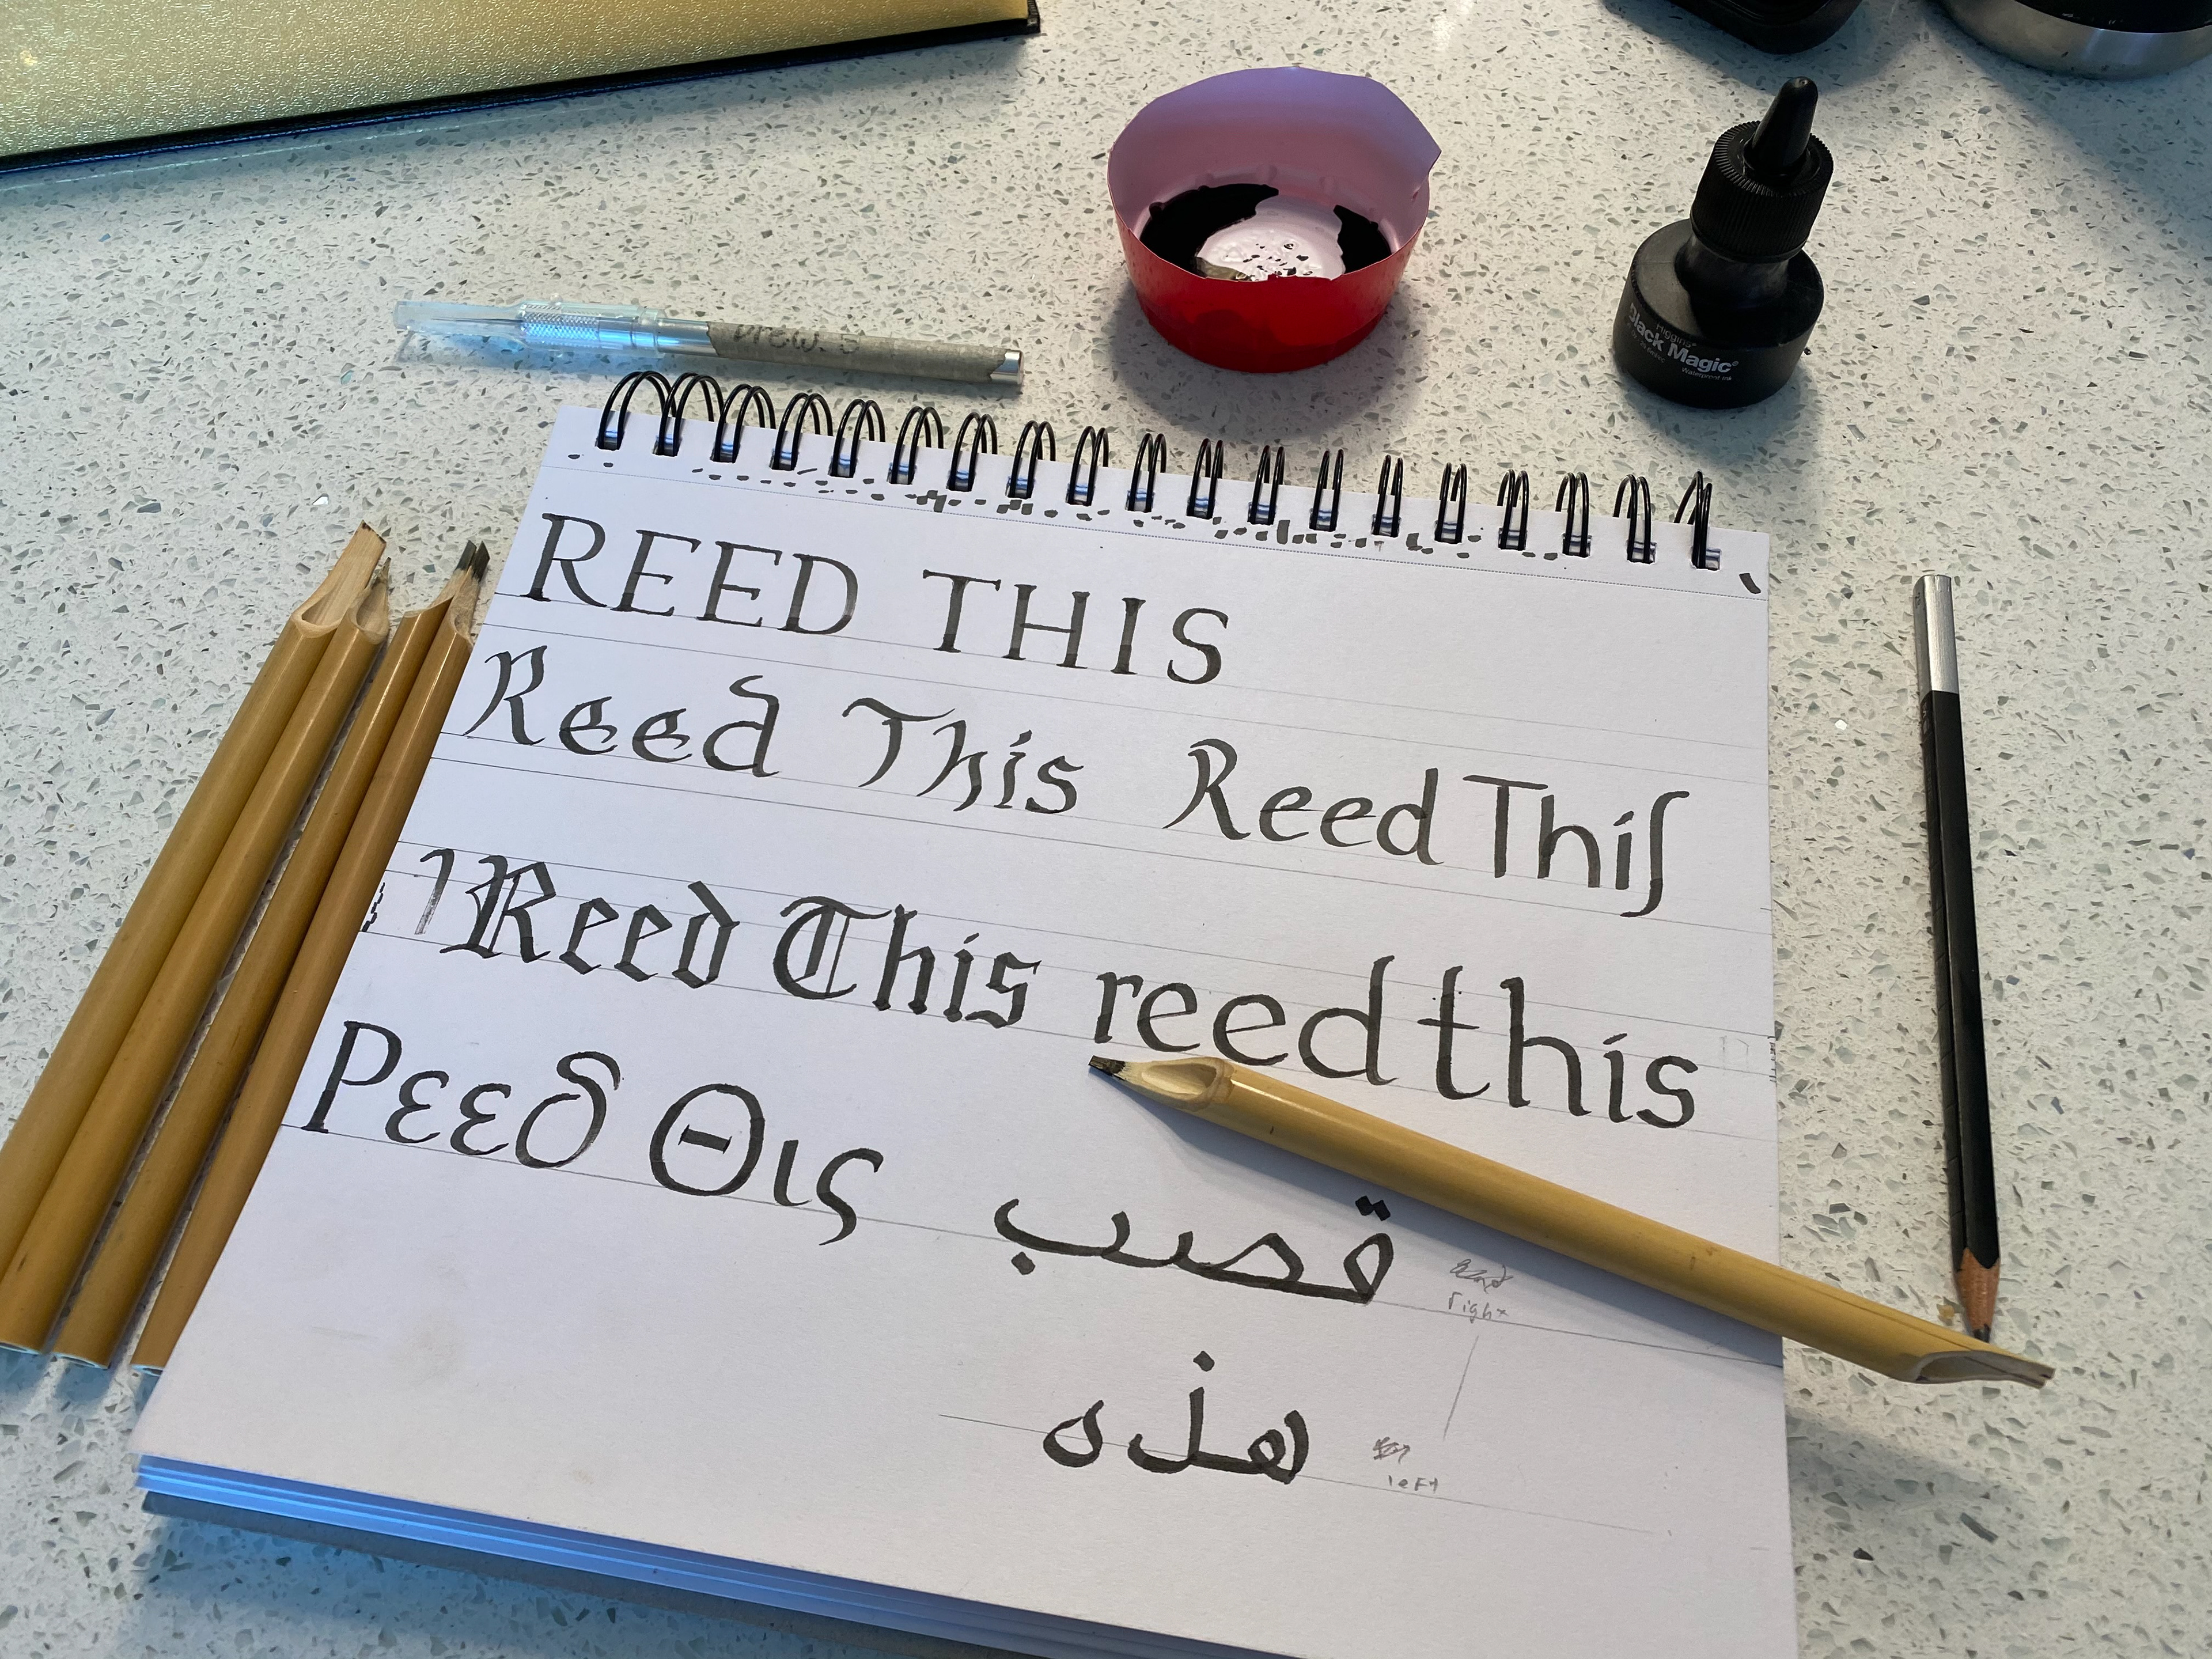 Higgins®
Black Magic®
Waterproof Ink
REED THIS
Reed This Reed Thiſ
Reed This reed this
Ρεεδ Θις
قصب
right
هذه
left